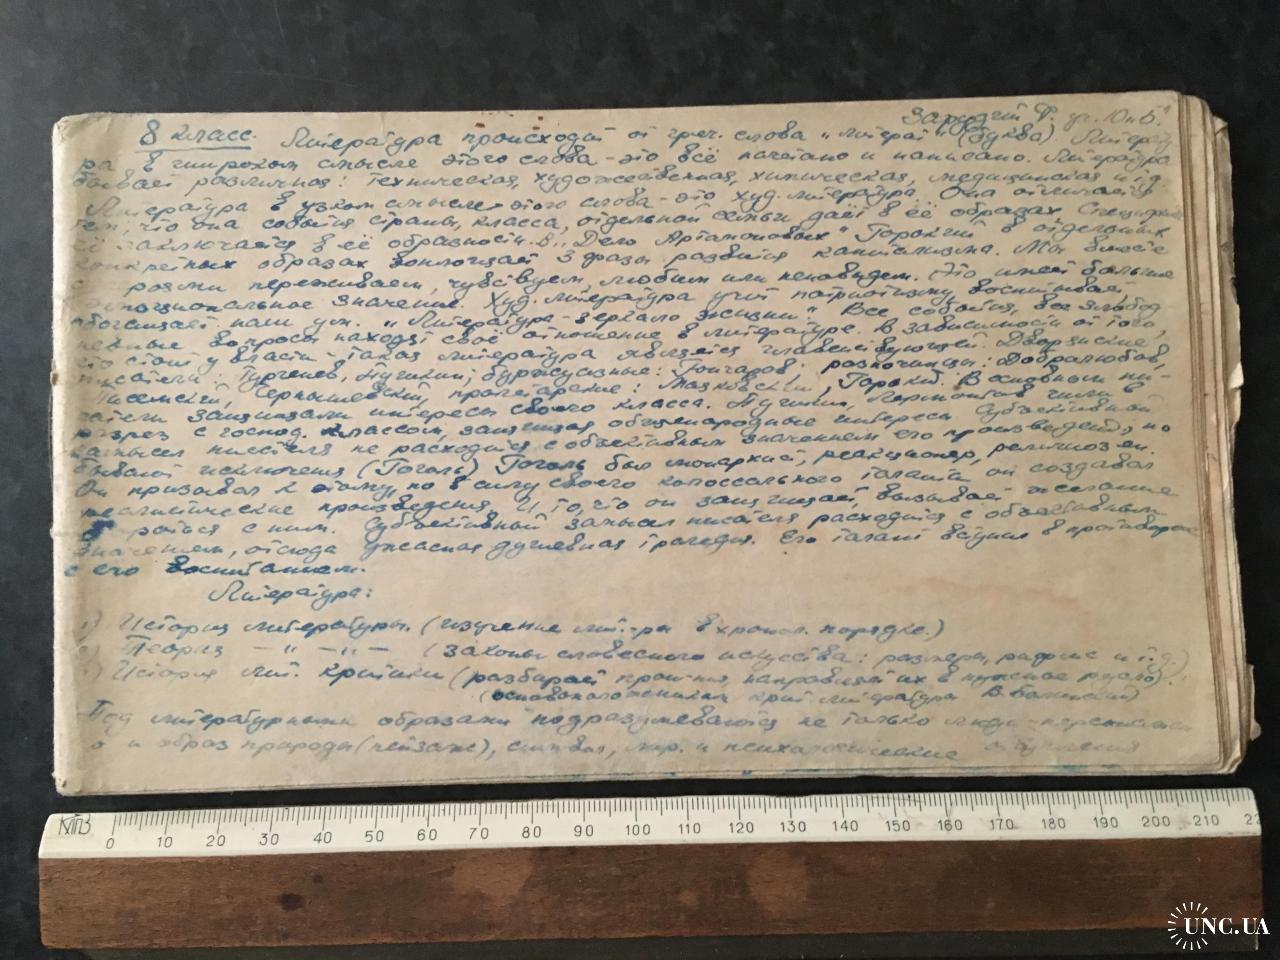 Зарудний Ф. уч. 10 "Б"
8 класс. Литература происходит от греч. слова "литера" (буква) Литерату
ра в широком смысле этого слова - это всё печатано и написано. Литература
бывает различная: техническая, художественная, химическая, медицинская и т.д.
Литература в узком смысле этого слова - это худ. литература. Она отличается
тем, что она события страны, класса, отдельной семьи даёт в её образах
её заключается в её образности. В "Дело Артамоновых" Горький в отдельных
конкретных образах воплощает 3 фазы развития капитализма. Мы вместе
с переживаем, чувствуем, любим или ненавидим. Это имеет большое
эмоциональное значение. Худ. литература учит патриотизму, воспитывает,
обогащает наш ум. "Литература - зеркало жизни" Все события, все злобод
невные вопросы находят своё отношение в литературе. В зависимости от того,
кто стоит у власти - такая литература является главенствующей. Дворянские
писатели: Тургенев, Пушкин; буржуазные: Гончаров; разночинцы: Добролюбов,
Писемский, Чернышевский, пролетарские: Маяковский, Горький. В основном пи-
сатели защищали интересы своего класса. Пушкин, Лермонтов шли в
разрез с господ. классом, защищая общенародные интересы. Субъективный
замысел писателя не расходится с объективным значением его произведений, но
бывают исключения (Гоголь) Гоголь был монархист, реакционер, религиозен.
Он призывал к этому, но в силу своего колоссального таланта он создавал
реалистические произведения. И то, что он защищает, вызывает желание
бороться с ним. Субъективный замысел писателя расходится с объективным
значением, отсюда ужасная душевная трагедия. Его талант вступил в противоре
с его воспитанием.
Литература:
1) История литературы. (изучение лит-ры в хронол. порядке.)
2) Теория — " — " — (законы словесного искусства: размеры, рифмы и т.д.)
3) История лит. критики (разбирает произ-ния, направляет их в нужное русло).
(основоположником крит. литературы В. Белинский)
Под литературными образами подразумеваются не только люди - персонажи
о и образ природы (пейзаж), символ, лир. и психологические
КПВ
0 10 20 30 40 50 60 70 80 90 100 110 120 130 140 150 160 170 180 190 200 210 22
UNC.UA